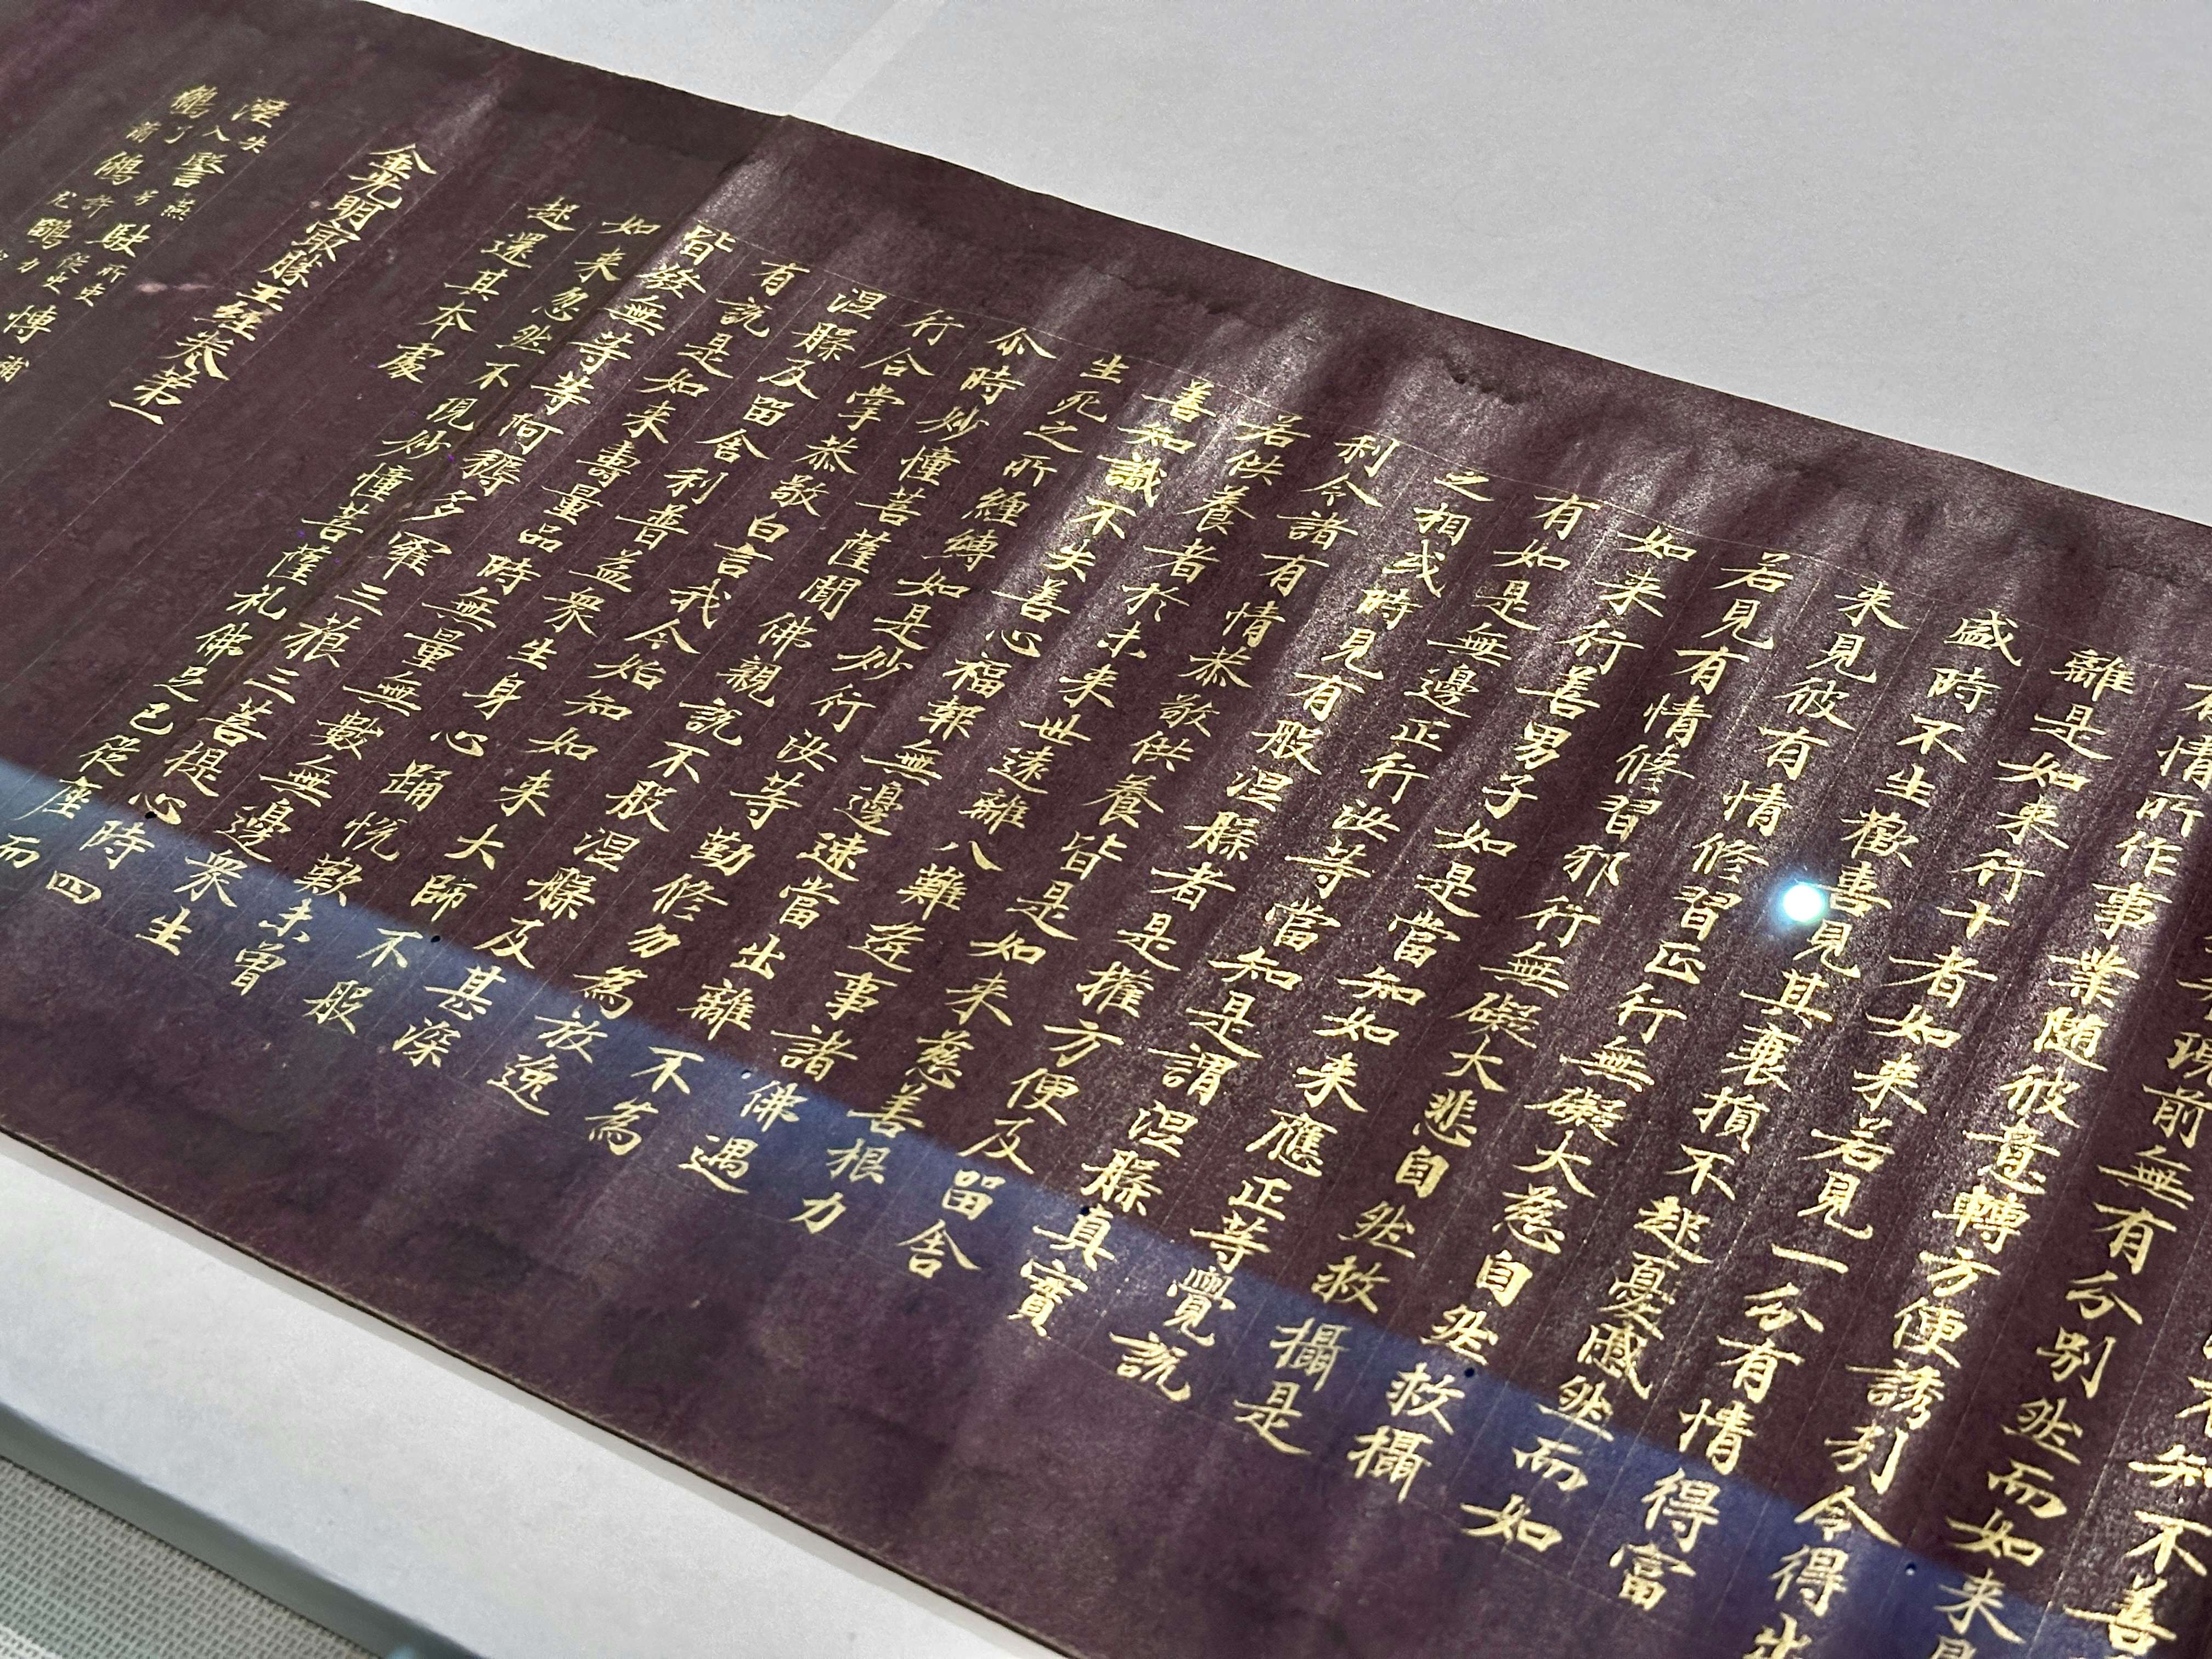 知不善
現前無有分別然而如来見
有情所作事業随彼意轉方便誘引令得出
離是如来行十者如来若見一分有情得富
盛時不生歡喜見其衰損不起憂慼然而如
来見彼有情修習正行無礙大慈自然救攝
若見有情修習邪行無礙大悲自然救攝是
如来行善男子如是當知如来應正等覺說
有如是無邊正行汝等當知是謂涅槃真實
之相或時見有般涅槃者是權方便及留舍
利令諸有情恭敬供養皆是如来慈善根力
若供養者於未来世遠離八難逢事諸佛遇
善知識不失善心福報無邊速當出離不為
生死之所纏縛如是妙行汝等勤修勿為放逸
尒時妙憧菩薩聞佛親說不般涅槃及甚深
行合掌恭敬白言我今始知如来大師不般
涅槃及留舍利普益衆生身心踊恱歎未曾
有說是如来壽量品時無量無數無邊衆生
皆發無等等阿耨多羅三藐三菩提心時四
如来忽然不現妙憧菩薩礼佛足已從座而
起還其本處
金光明冣勝王經卷第一